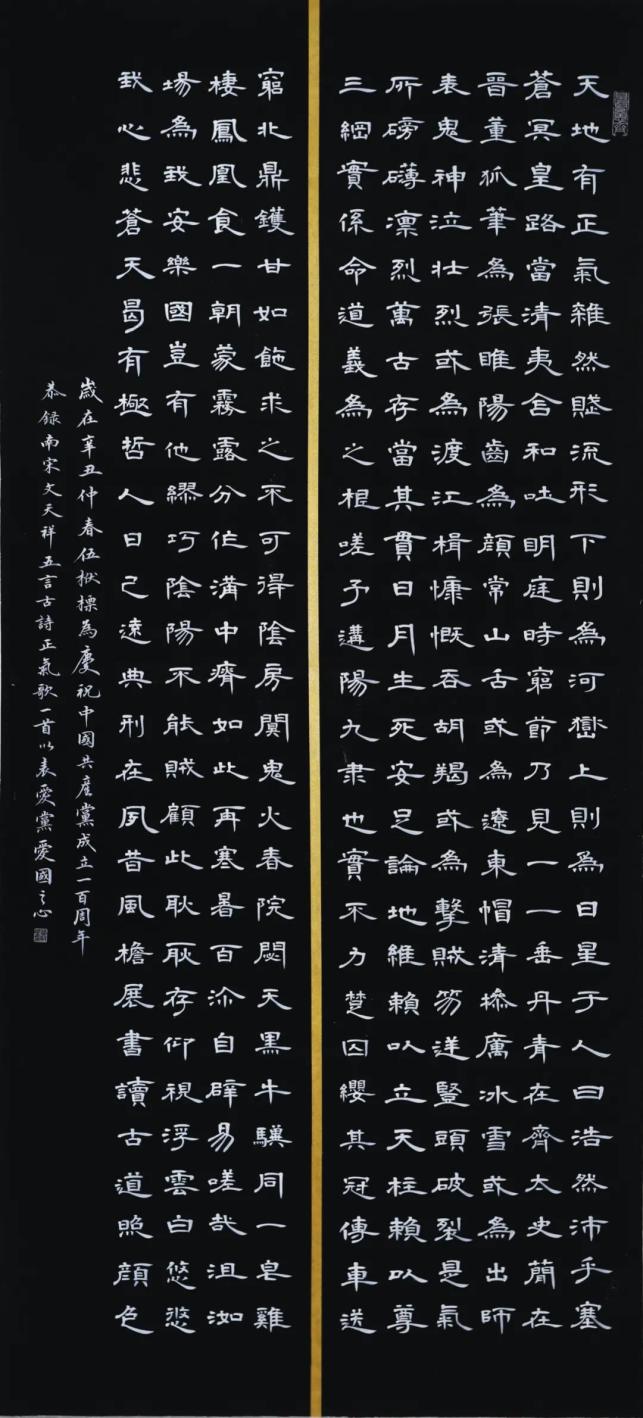 天地有正氣雜然賦流形下則為河嶽上則為日星于人曰浩然沛乎塞
蒼冥皇路當清夷含和吐明庭時窮節乃見一一垂丹青在齊太史簡在
晉董狐筆為張睢陽齒為顏常山舌或為遼東帽清操厲冰雪或為出師
表鬼神泣壯烈或為渡江楫慷慨吞胡羯或為擊賊笏逆豎頭破裂是氣
所磅礴凜烈萬古存當其貫日月生死安足論地維賴以立天柱賴以尊
三綱實係命道義為之根嗟予遘陽九隸也實不力楚囚纓其冠傳車送
窮北鼎鑊甘如飴求之不可得陰房闐鬼火春院閟天黑牛驥同一皂雞
棲鳳凰食一朝蒙霧露分作溝中瘠如此再寒暑百沴自辟易嗟哉沮洳
場為我安樂國豈有他繆巧陰陽不能賊顧此耿耿存仰視浮雲白悠悠
我心悲蒼天曷有極哲人日已遠典刑在夙昔風檐展書讀古道照顏色
歲在辛丑仲春伍標為慶祝中國共產黨成立一百周年
恭録南宋文天祥五言古詩正氣歌一首以表愛黨愛國之心